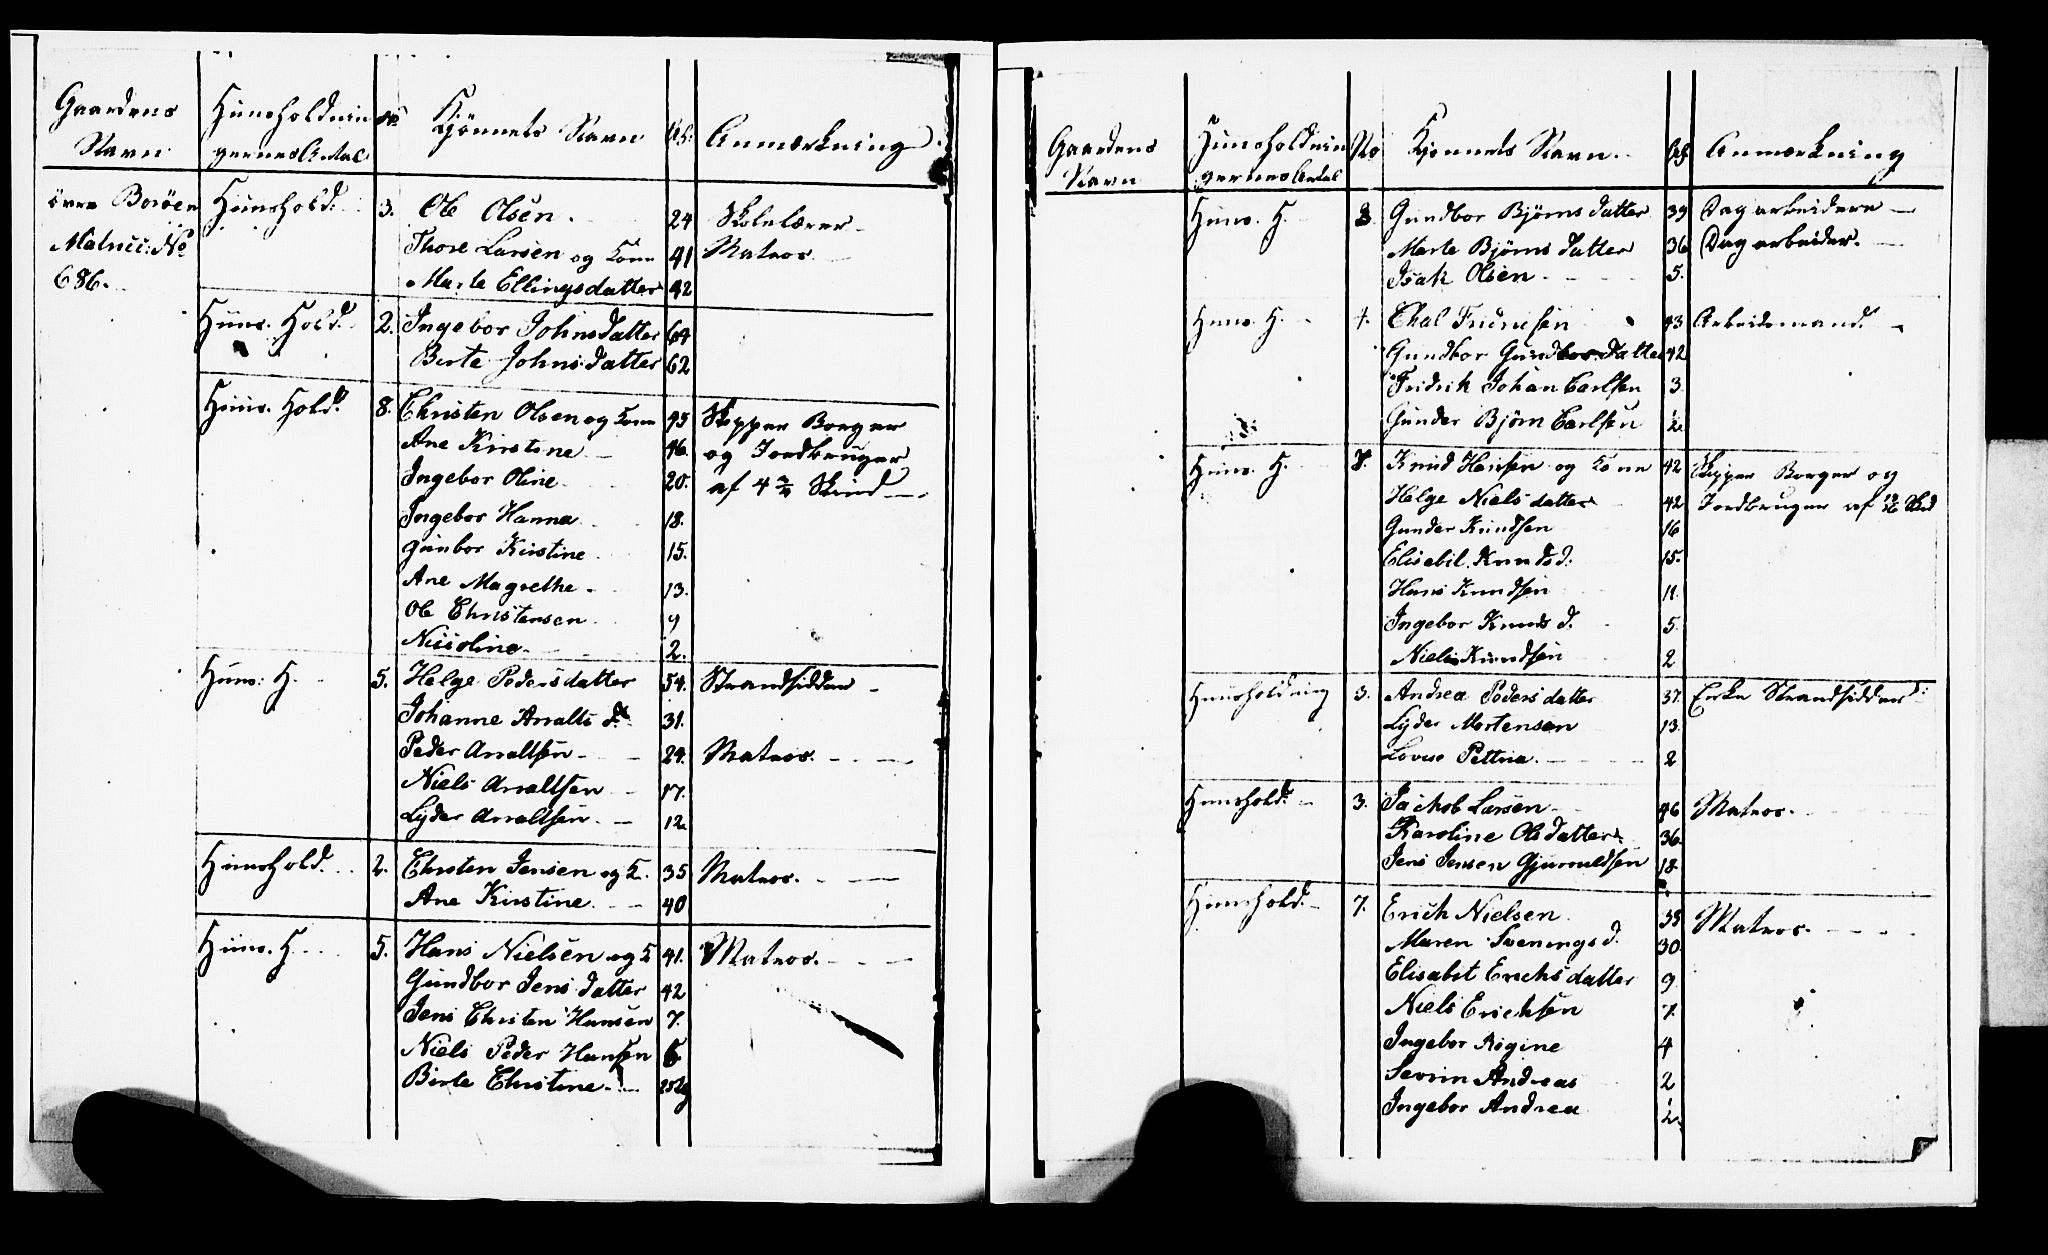 Gaardens Navn | Huusholdnin gernes Antal | No | Kjønnets Navn | Al: | Anmærkning
övre Boröen | Huushold: | 3. | Ole Olsen | 24 | Skolelærer
Matrici: No | Thore Larsen og Kone | 41 | Matros
686. | Marte Ellingsdatter | 42
Huus. Hold. | 2. | Ingebor Johnsdatter | 64
Berte Johnsdatter | 62
Huus. Hold. | 8. | Christen Olsen og Kone | 45 | Skipper Borger
Ane Kirstine | 46. | og Jordbruger
Ingebor Oline | 20. | af 4 Skind
Ingebor Hanna | 18.
Gunbor Kirstine | 15.
Ane Magrethe | 13.
Ole Christensen | 9
Nicoline | 2.
Huus. H. | 5. | Helge Pedersdatter | 54. | Strandsidder
Johanne Arralts d. | 31.
Peder Arraltsen | 24. | Matros.
Niels Arraltsen | 17.
Lyder Arraltsen | 12
Huushold. | 2. | Christen Jensen og K. | 35 | Matros.
Ane Kirstine | 40
Huus. H. | 5. | Hans Nielsen og K | 41. | Matros.
Gundbor Jens datter | 42
Jens Christen Hansen | 7.
Niels Peder Hansen | 5
Berte Christine
Gaardens Navn | Huusholdnin gernes Antal | No | Kjønnets Navn | Al. | Anmærkning
Huus. H. | 3. | Gundbor Bjørns datter | 39 | Dagarbeidere
Marte Bjørns datter | 36 | Dagarbeider.
Isak Olsen | 5.
Huus. H. | 4. | Thal Fridriksen | 43 | Arbeidsmand.
Gundbor Gundbors datter | 42
Fridrik Johan Carlsen | 3
Gunder Bjørn Carlsen | ½
Huus. H. | 7. | Knud Hansen og Kone | 42 | Skipper Borger og
Helge Niels datter | 42 | Jordbruger af Skd
Gunder Knudsen | 16
Elisabit Knuds d: | 15.
Hans Knudsen | 11
Ingebor Knuds d. | 5.
Niels Knudsen | 2
Huusholdning | 3. | Andrea Peders datter | 37. | Enke Strandsidder
Lyder Mortensen | 13
Lovise Pettrea | 2
Huushold. | 3. | Jackob Larsen | 46 | Matros.
Karoline Olsdatter | 36
Jens Jensen Gjeruldsen | 18.
Huushold. | 7. | Erich Nielsen | 38 | Matros.
Maren Svenings d. | 30
Elisabet Erichs datter | 9
Niels Erichsen | 7
Ingebor Regine | 4
Severin Andreas | 2
Ingebor Andrea | ½